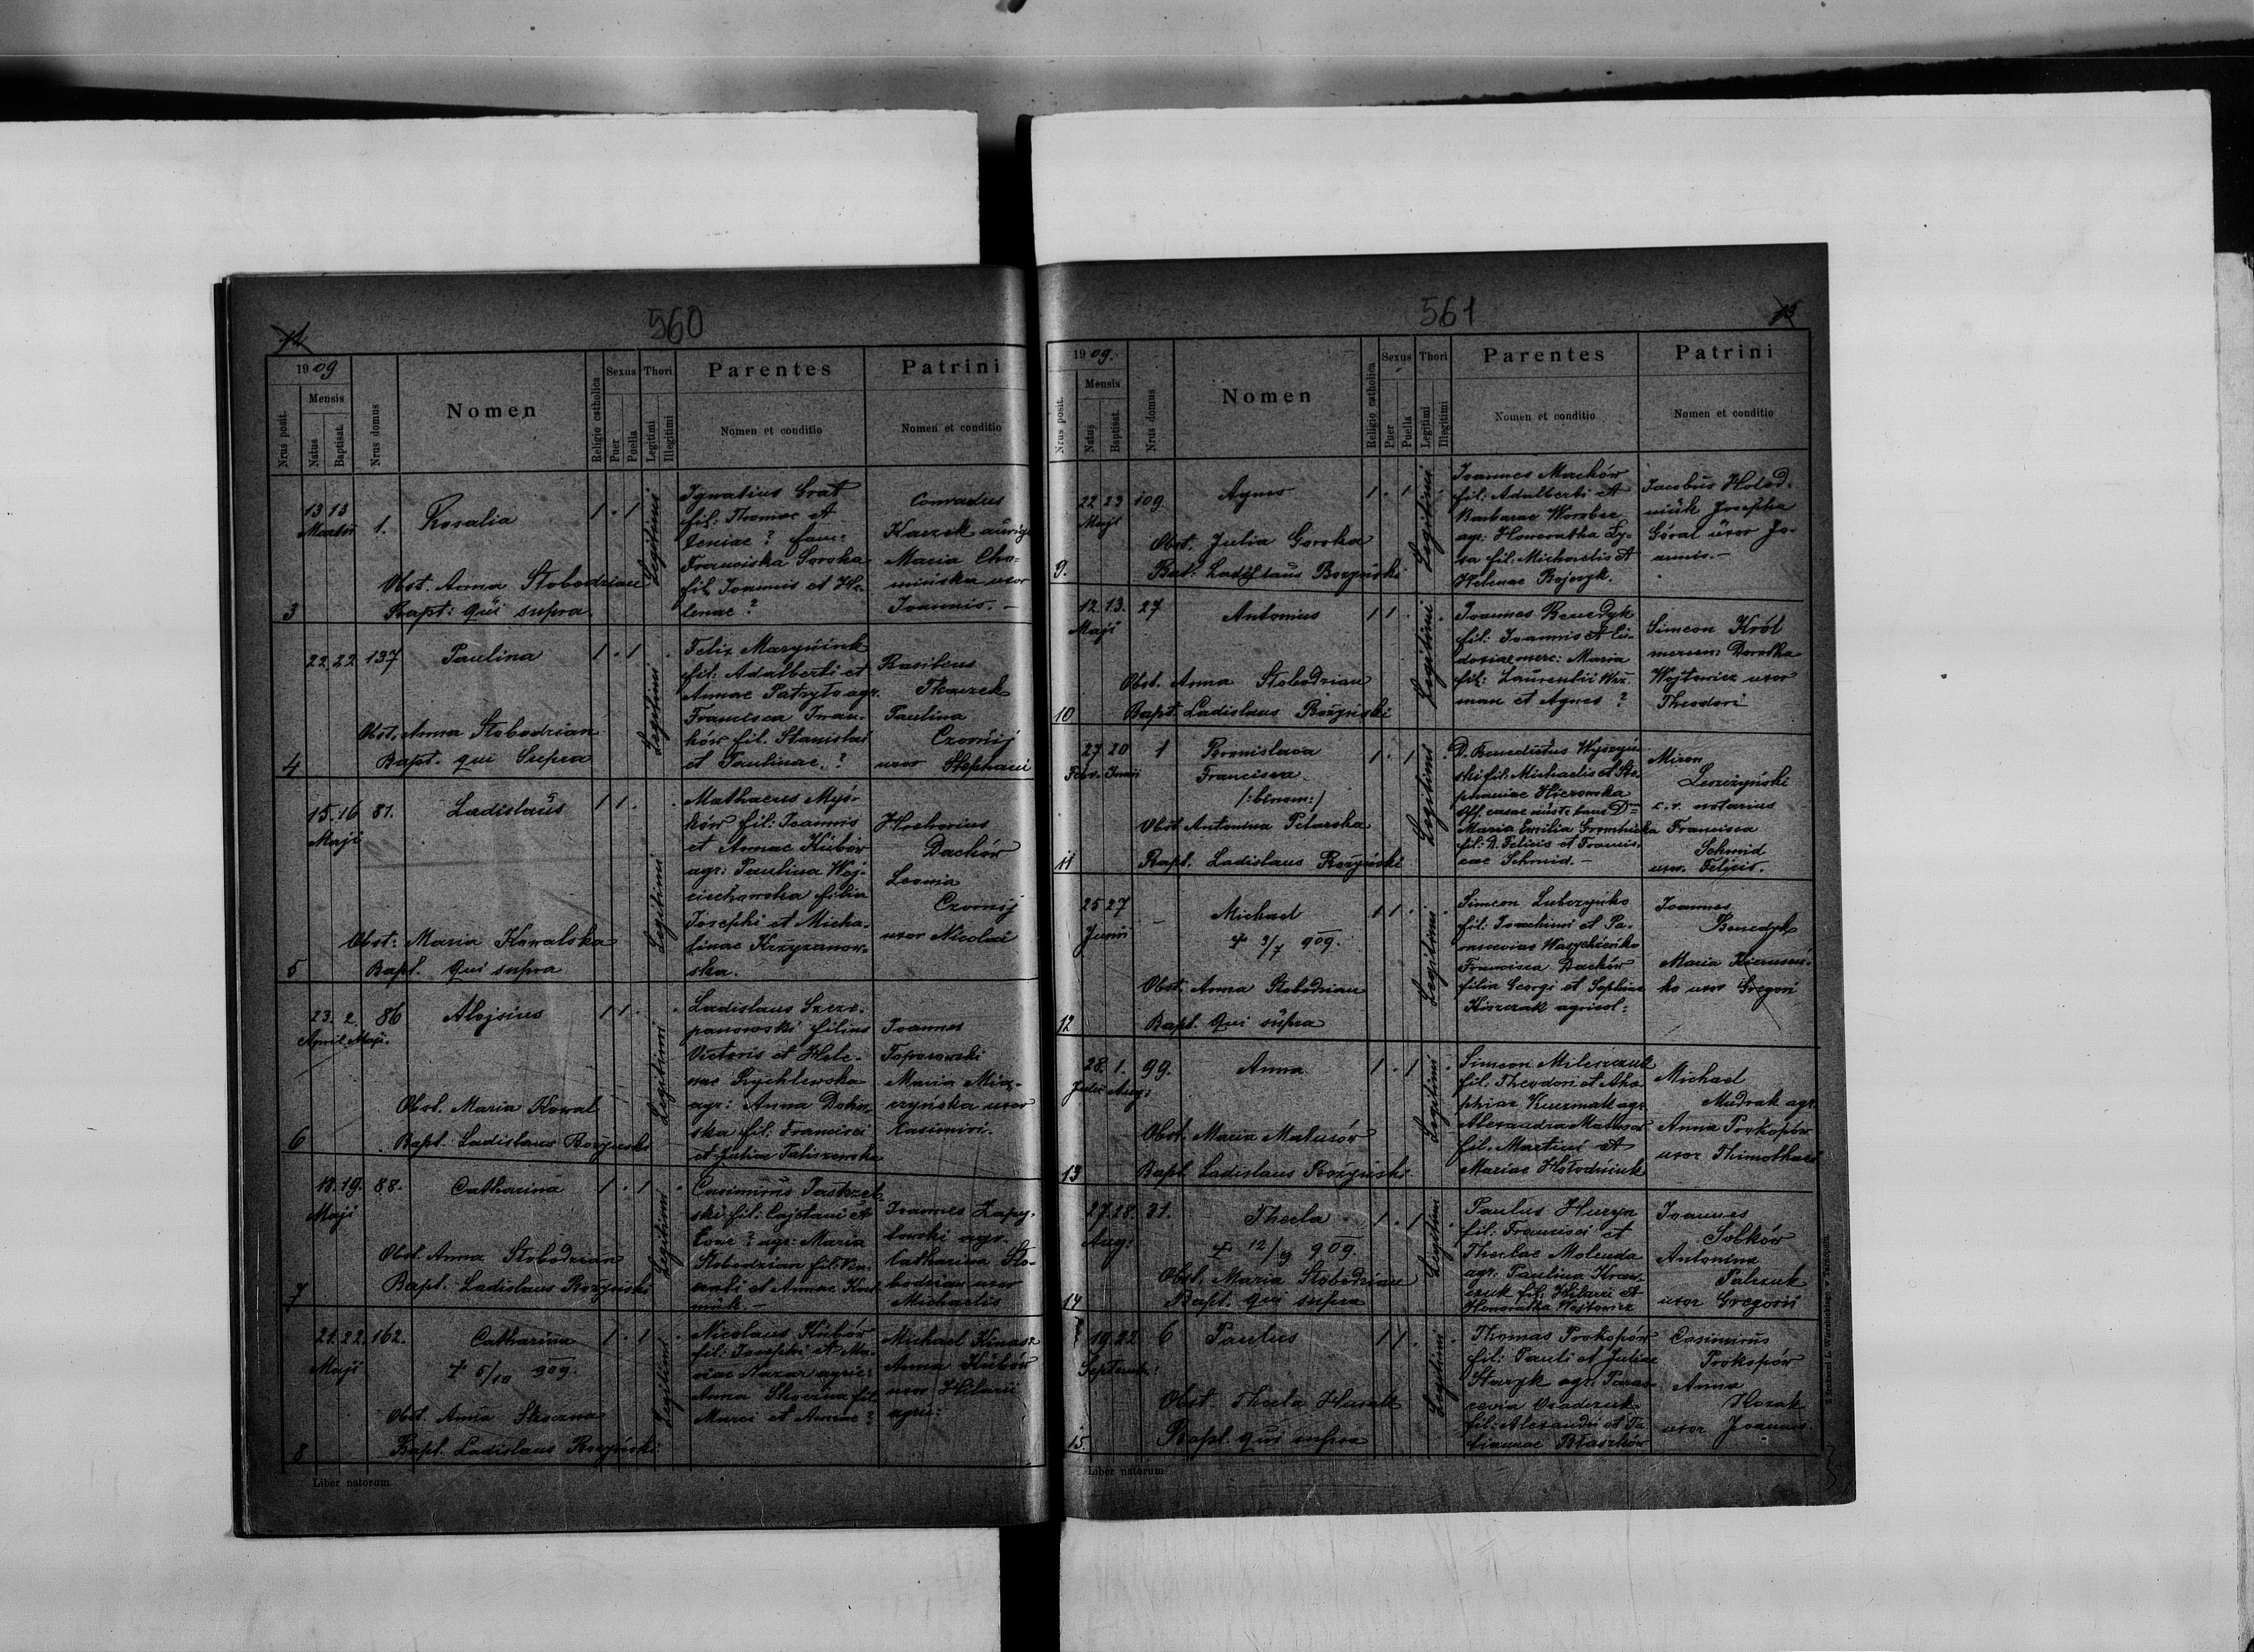 12
560
1909
Nrus posit.
Mensis
Natus
Baptisat.
Nrus domus
Nomen
Religio catholica
Sexus
Puer
Puella
Thori
Legitimi
Illegitimi
Parentes
Nomen et conditio
Patrini
Nomen et conditio
3
13 13
Martii
1.
Rosalia
Obst. Anna Słobodzian
Bapt: qui supra
1 . 1
Legitimi
Ignatius Brat
fil: Thomae et
Xeniae ? fam:
Franciska Soroka
fil. Joannis et He-
lenae ?
Conradus
Karzek auriga
Maria Cho-
minska uxor
Joannis. —
4
22. 22
137
Paulina
Obst. Anna Słobodzian
Bapt. qui Supra
1 . 1
Legitimi
Felix
fil: Adalberti et
Annae agr.
Francisca Iwan-
ków fil. Stanislai
et Paulinae. ?
Basileus
Tkaczek
Paulina
Czornij
uxor Stephani
5
15. 16
Maji
81.
Ladislaus
Obst: Maria Kowalska
Bapt. Qui supra
1 1 .
Legitimi
Mathaeus Myś-
ków fil: Joannis
et Annae Kubów
agr: Paulina Woj-
ciechowska filia
Josephi et Micha-
linae Krzyżanow-
ska.
Hrehorius
Dachów
Leonia
Czornij
uxor Nicolai
6
23. 2.
April. Maji.
86
Alojsius
Obst. Maria Kowal
Bapt. Ladislaus Bożyński
1 1 .
Legitimi
Ladislaus Szcze-
panowski filius
Victoris et Hele-
nae Rychlewska
agr: Anna
ska fil: Francisci
et Juliae Taliszewska
Joannes
Toporowski
Maria Mią-
czyńska uxor
Kasimiri.
7
18. 19.
Maji
88.
Catharina
Obst. Anna Słobodzian
Bapt. Ladislaus Bożyński
1 . 1
Legitimi
Casimirus Jastrzęb-
ski fil: Cajetani et
Evae ? agr: Maria
Słobodzian fil:
et Annae
Joannes Zapy-
towski agr.
Catharina Sło-
bodzian uxor
Michaelis
8
21. 22.
Maji
162.
Catharina
† 5/10 909.
Obst. Anna Skoczna
Bapt. Ladislaus Bożyński
1 . 1
Legitimi
Nicolaus Kubów
fil: Josephi et Ma-
riae Nazar agric:
Anna fil.
Marci et Annae ?
Michael Kinasz
Anna Kubów
uxor Hilarii
agric:
Liber natorum
561
13
1909.
Nrus posit.
Mensis
Natus
Baptisat.
Nrus domus
Nomen
Religio catholica
Sexus
Puer
Puella
Thori
Legitimi
Illegitimi
Parentes
Nomen et conditio
Patrini
Nomen et conditio
9.
22 23
Maji
109.
Agnes
Obst. Julia Goroka
Bat: Ladislaus Bożyński
1 . 1
Legitimi
Joannes Machów
fil: Adalberti et
Barbarae Worobec
agr: Honoratha Ły-
sa fil: Michaelis et
Helenae Bojczyk.
Jacobus Hołod-
niuk Josepha
Góral uxor Jo-
annis. —
10
12. 13.
Maji
27
Antonius
Obst. Anna Słobodzian
Bapt. Ladislaus Bożyński
1 1 .
Legitimi
Joannes Benedyk
fil: Joannis et Eu-
doxiae merc: Maria
fil: Laurentii
man et Agnes ?
Simeon Król
mercen: Dorotha
Wojtowicz uxor
Theodori
11
27 20
Febr. Junii
1
Bronislava
Francisca
/:binom:/
Obst. Antonina Petarska
Bapt. Ladislaus Bożyński
1 . 1
Legitimi
D. Benedictus Wyszyń-
ski fil: Michaelis et Ste-
phaniae
Off.
Maria Emilia Gromnicka
fil: D. Felicis et Francis-
cae Schmid. —
Miron
Leszczyński
c. r. notarius
Francisca
Schmid
uxor. Felicis.
12
25 27
Junii
—
Michael
† 3/7 909.
Obst. Anna Słobodzian
Bapt. Qui supra
1 1 .
Legitimi
Simeon Lubczyńko
fil: Joachimi et Pa-
rasceviae
Francisca Dachów
filia Georgi et Sophiae
Kiszczak agricol:
Joannes
Benedyk
Maria
ko uxor Gregori
13
28. 1.
Julii Aug:
99.
Anna
Obst. Maria Matusów
Bapt. Ladislaus Bożyński
1 . 1
Legitimi
Simeon Mileszczuk
fil. Theodori et Aha-
phiae Kuzmak agr.
Alexandra Matusow
fil. Martini et
Mariae Hołodniuk
Michael
Mudrak agr.
Anna Prokopów
uxor Thimothaei
14
27. 28.
Aug:
31.
Thecla
† 12/9 909.
Obst. Maria Słobodzian
Bapt. Qui supra
1 . 1
Legitimi
Paulus Huzyn
fil: Francisci et
Theclae Molenda
agr. Paulina Kraw-
czuk fil. Hilarii et
Honoratha Wojtowicz
Joannes
Sołków
Antonina
Palczuk
uxor Gregorii
15.
19. 22.
Septemb:
6
Paulus
Obst. Thecla
Bapt. qui supra
1 1 .
Legitimi
Thomas Prokopów
fil: Pauli et Juliae
Staryk agr. Paras-
cevia Osadczuk
fil: Alexandri et Ta-
tiannae Błaszków
Casimirus
Prokopów
Anna
Kozak
uxor Joannis.
Liber natorum